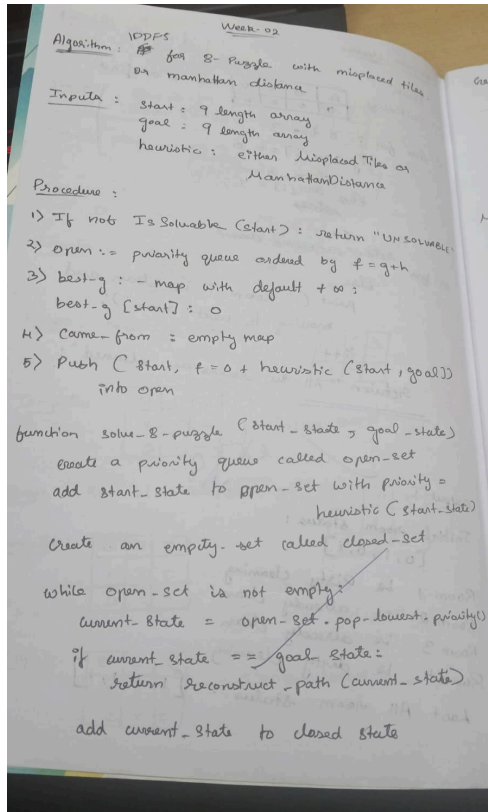 Week-02
Algorithm : IDDFS for 8-Puzzle with misplaced tiles
or manhattan distance
Inputs : start : 9 length array
goal : 9 length array
heuristic : either Misplaced Tiles or
ManhattanDistance
Procedure :
1) If not Is Solvable (start) : return "UNSOLVABLE"
2) open := priority queue ordered by f = g+h
3) best-g : - map with default + ∞ :
best-g [start] : 0
4) Came-from : empty map
5) Push (start, f = 0 + heuristic (start, goal))
into open
function solve-8-puzzle (start_state, goal_state)
create a priority queue called open-set
add start_state to open-set with priority =
heuristic (start_state)
create an empty-set called closed-set
while open-set is not empty:
current_state = open-set.pop-lowest.priority()
if current_state == goal_state:
return reconstruct_path (current_state)
add current_state to closed state